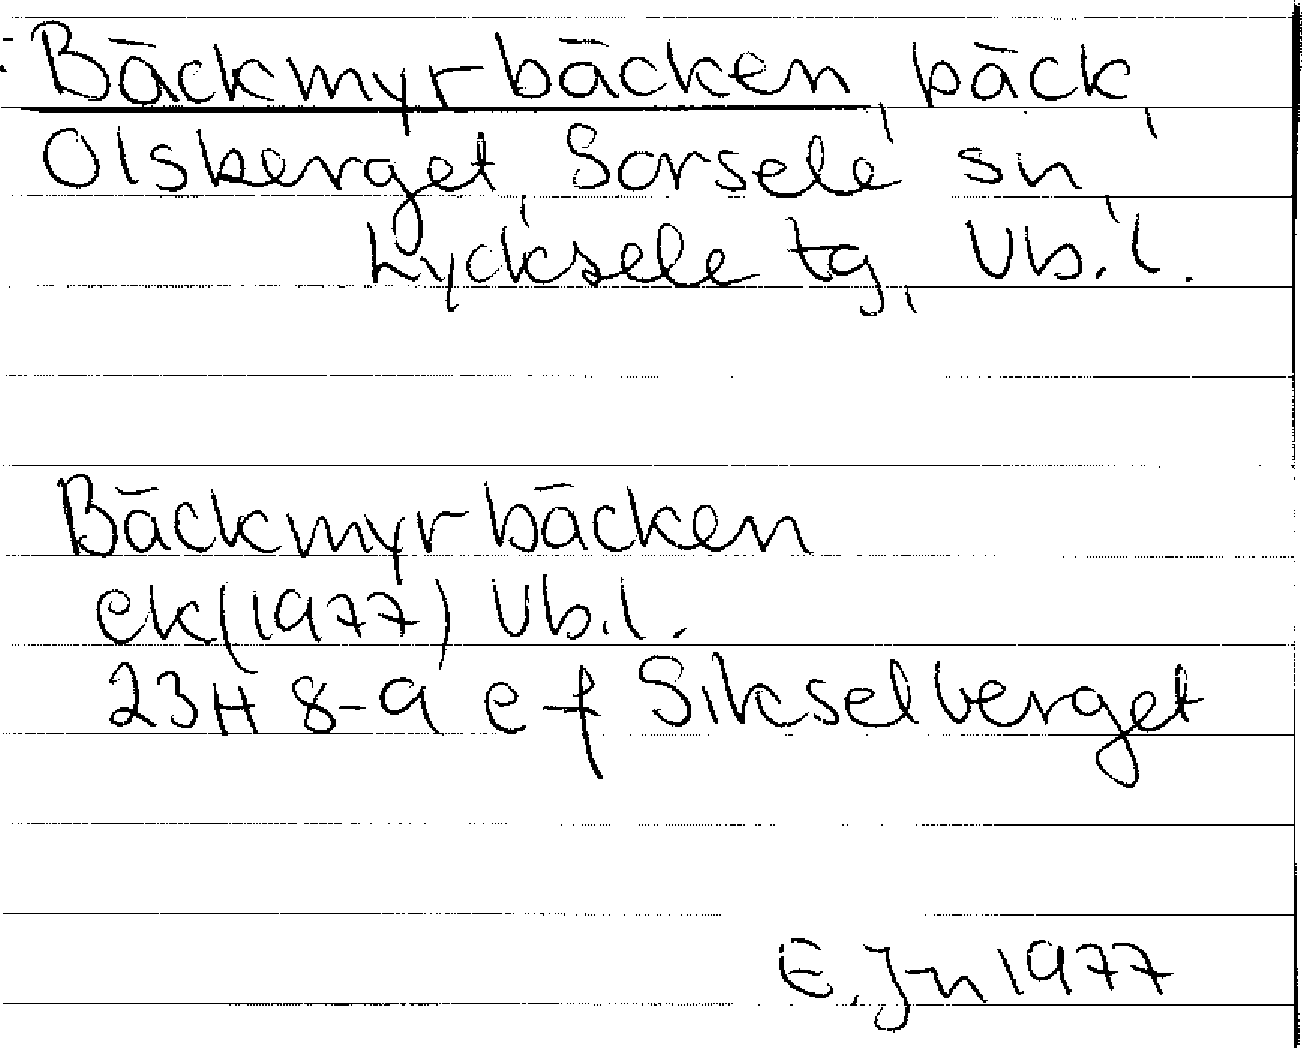 Bäckmyrbäcken, bäck,
Olsberget, Sorsele sn,
Lycksele tg, Vb. l.
Bäckmyrbäcken
ek (1977) Vb. l.
23H 8-9 e-f Sikselberget
E. Jn 1977